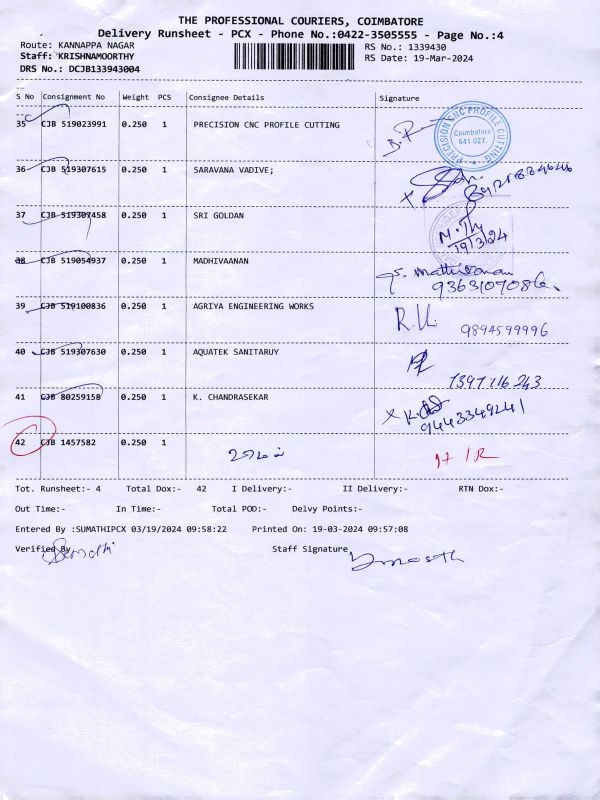 THE PROFESSIONAL COURIERS, COIMBATORE
Delivery Runsheet - PCX - Phone No.:0422-3505555 - Page No.:4
Route: KANNAPPA NAGAR RS No.: 1339430
Staff: KRISHNAMOORTHY RS Date: 19-Mar-2024
DRS No.: DCJB133943004
S No Consignment No Weight PCS Consignee Details Signature
35 CJB 519023991 0.250 1 PRECISION CNC PROFILE CUTTING
PRECISION CNC PROFILE CUTTING
Coimbatore
641 027.
36 CJB 519307615 0.250 1 SARAVANA VADIVE;
37 CJB 519307458 0.250 1 SRI GOLDAN
19/3/24
38 CJB 519054937 0.250 1 MADHIVAANAN
S. Mathivanan
39 CJB 519100836 0.250 1 AGRIYA ENGINEERING WORKS
9894599996
40 CJB 519307630 0.250 1 AQUATEK SANITARUY
41 CJB 80259158 0.250 1 K. CHANDRASEKAR
9443349241
42 CJB 1457582 0.250 1
Tot. Runsheet:- 4 Total Dox:- 42 I Delivery:- II Delivery:- RTN Dox:-
Out Time:- In Time:- Total POD:- Delvy Points:-
Entered By :SUMATHIPCX 03/19/2024 09:58:22 Printed On: 19-03-2024 09:57:08
Verified By Staff Signature